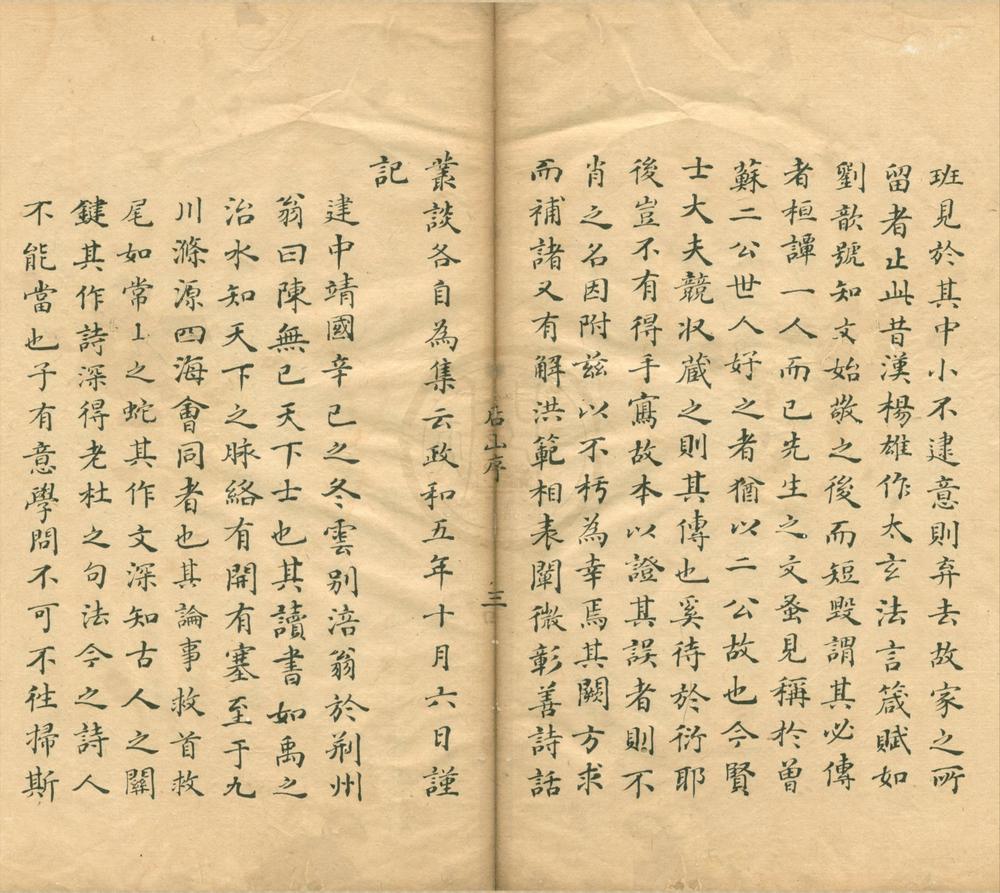 班見於其中小不逮意則弃去故家之所
留者止此昔漢楊雄作太玄法言箴賦如
劉歆號知文始敬之後而短毀謂其必傳
者桓譚一人而已先生之文蚤見稱於曾
蘇二公世人好之者猶以二公故也今賢
士大夫競収蔵之則其傳也奚待於衍耶
後豈不有得手寫故本以證其誤者則不
肖之名因附茲以不朽為幸焉其闕方求
而補諸又有解洪範相表闡微彰善詩話
后山序
三
叢談各自為集云政和五年十月六日謹
記
建中靖國辛已之冬雲别涪翁於荊州
翁曰陳無已天下士也其讀書如禹之
治水知天下之脉絡有開有塞至于九
川滌源四海會同者也其論事救首救
尾如常山之蛇其作文深知古人之關
鍵其作詩深得老杜之句法今之詩人
不能當也子有意學問不可不往掃斯